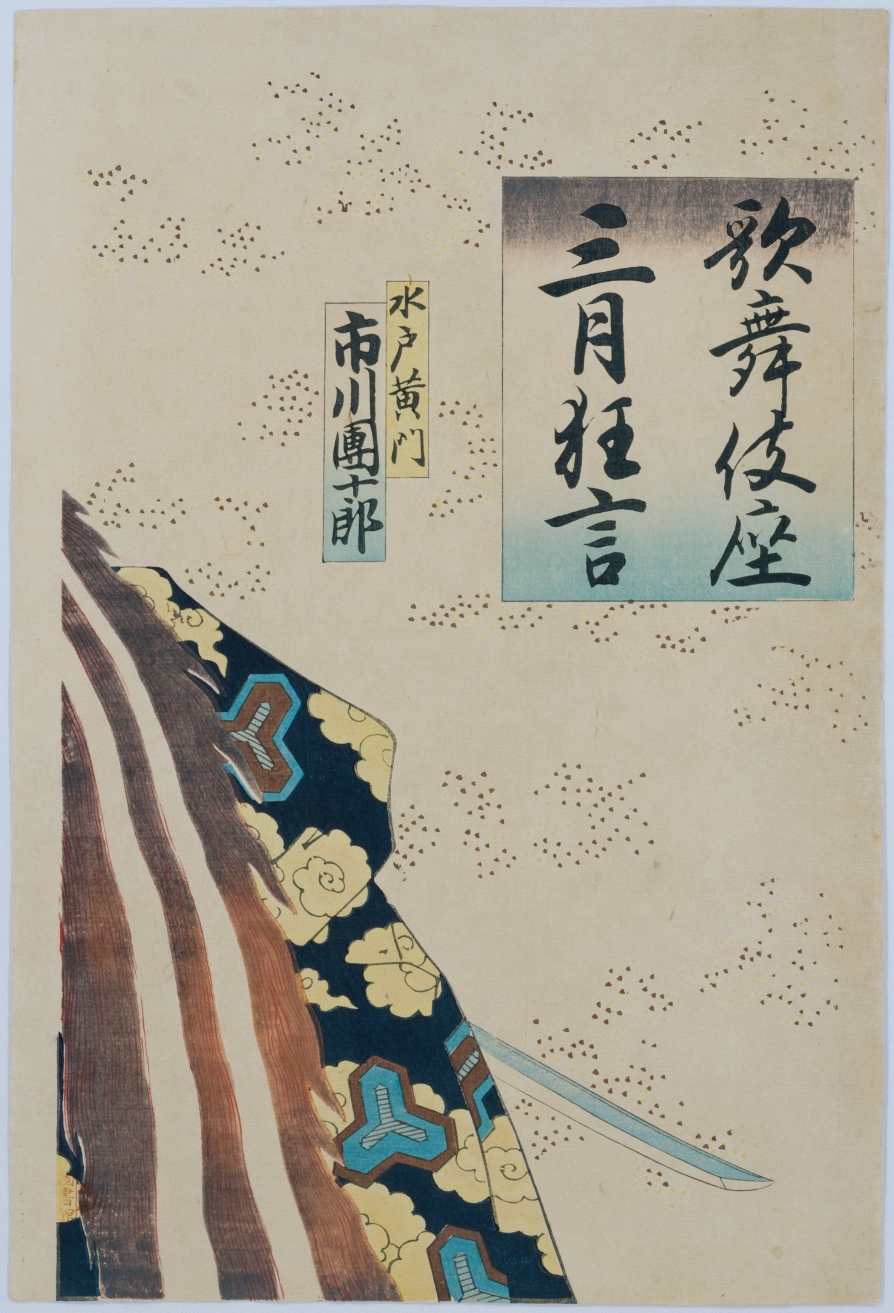 歌舞伎座
三月狂言
水戸黄門
市川團十郎